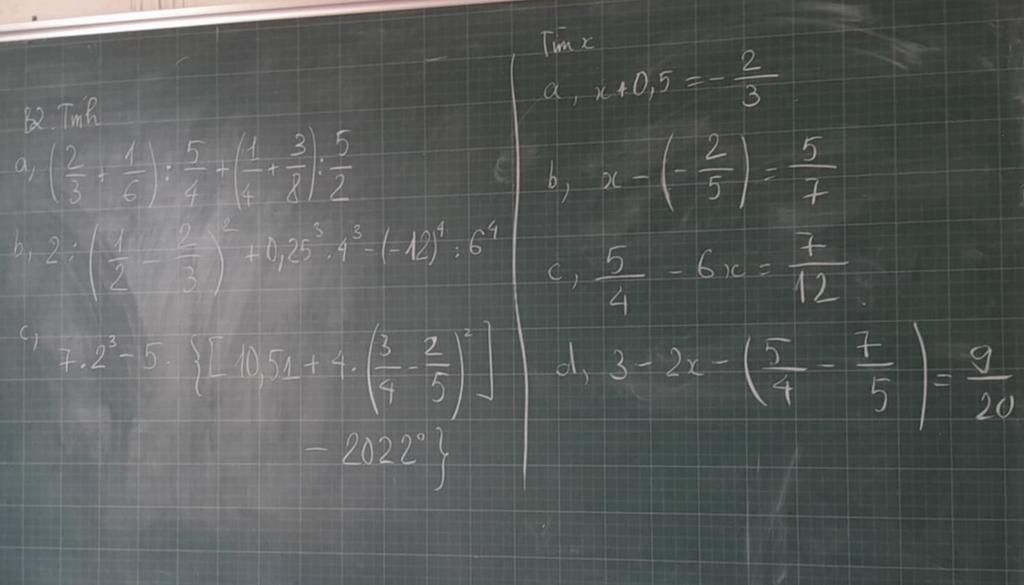 B2. Tính
a, (2/3 + 1/6) : 5/4 + (1/4 + 3/8) : 5/2
b, 2 : (1/2 - 2/3)² + 0,25³ . 4³ - (-12)⁴ : 6⁴
c, 7.2³ - 5. {[10,51 + 4. (3/4 - 2/5)²]
- 2022⁰}
Tìm x
a, x + 0,5 = - 2/3
b, x - (- 2/5) = 5/7
c, 5/4 - 6x = 7/12
d, 3 - 2x - (5/4 - 7/5) = 9/20